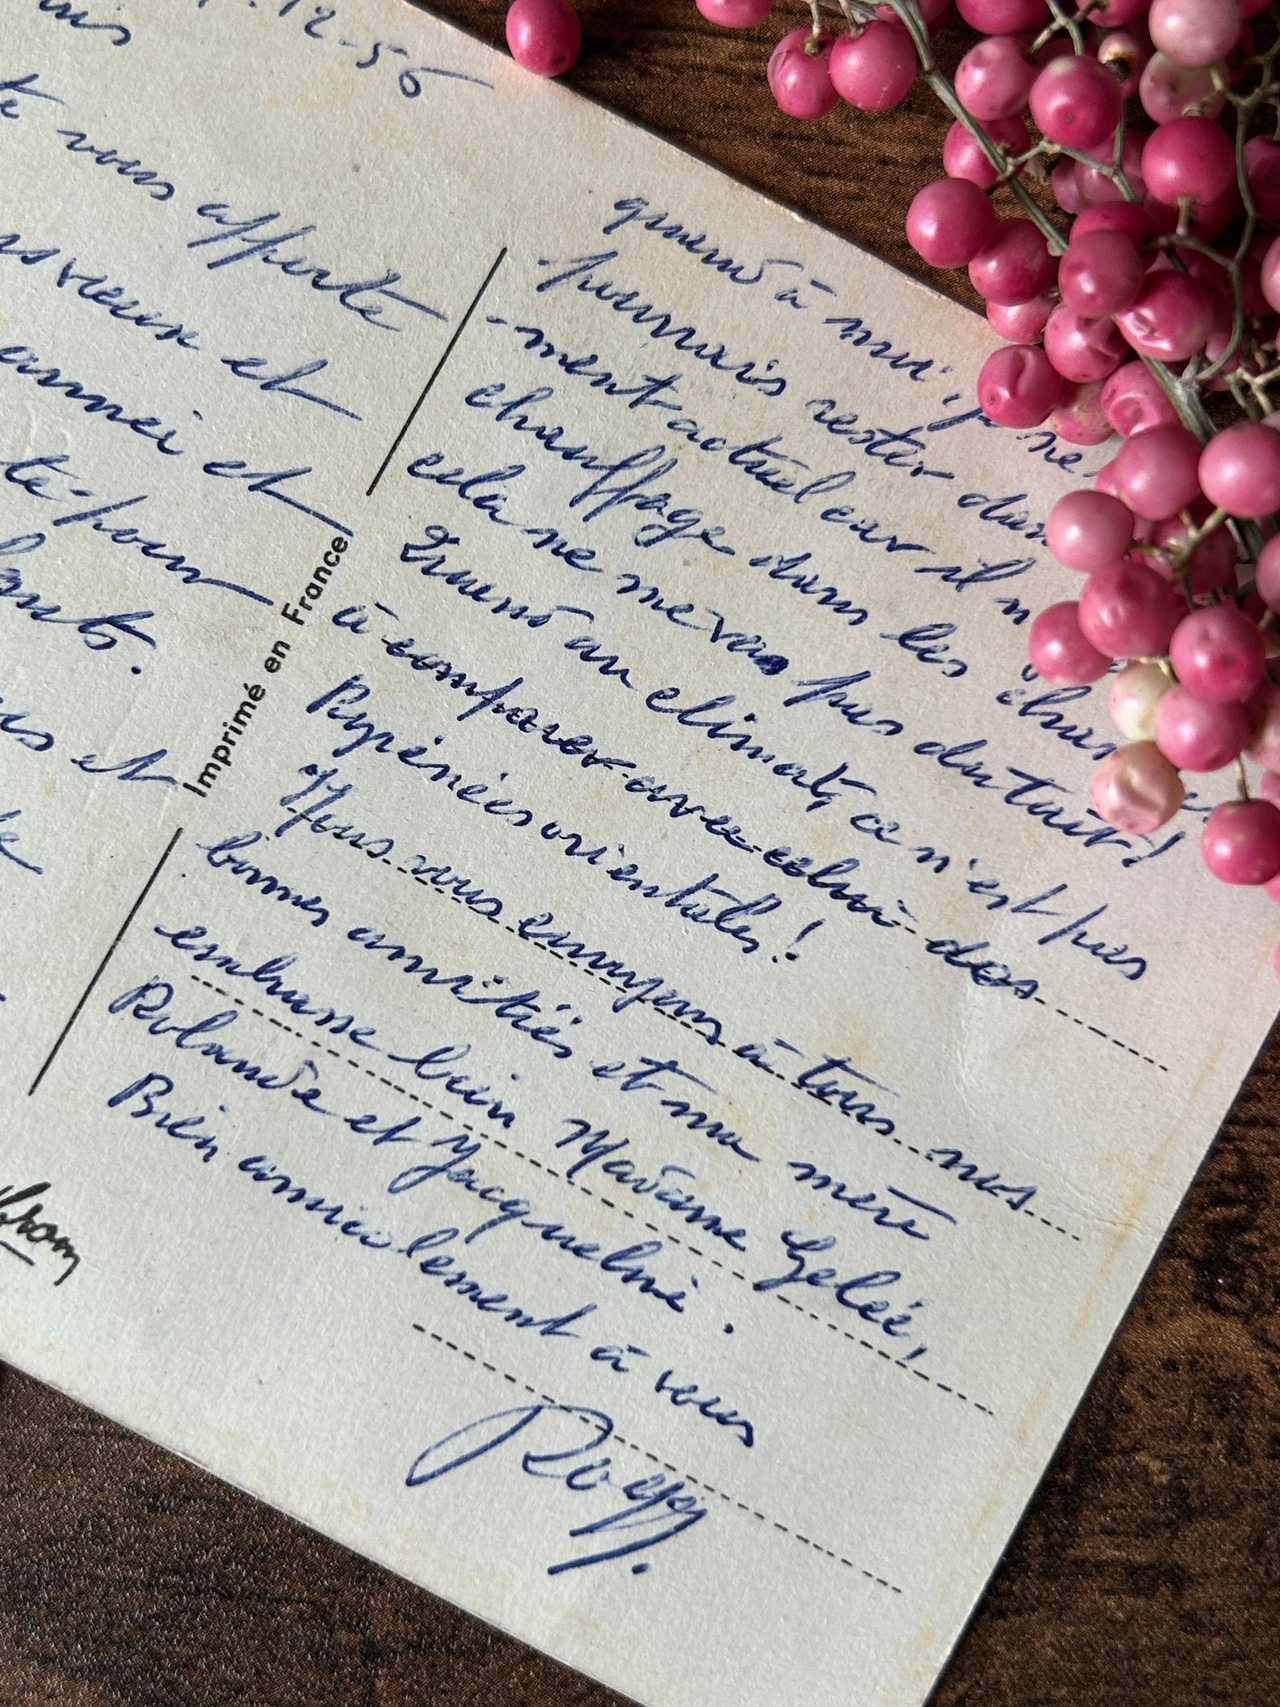 12-56
te vous apporte
vœux et
année et
té pour
et
Imprimé en France
quand à moi, je ne
pourrais rester dans
-ment actuel car il n'
chauffage dans les cham
cela ne me va pas du tout!
Quand au climat, ce n'est pas
à comparer avec celui des
Pyrénées orientales!
Nous vous envoyons à tous nos
bonnes amitiés et ma mère
embrasse bien Madame Gelée,
Rolande et Jacqueline.
Bien amicalement à vous